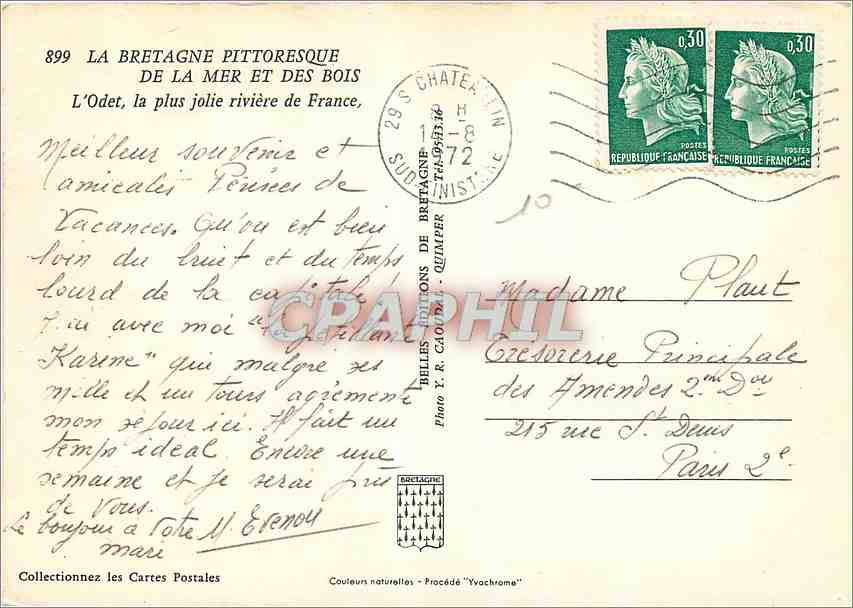 899 LA BRETAGNE PITTORESQUE
DE LA MER ET DES BOIS
L'Odet, la plus jolie rivière de France,
Meilleur souvenir et
amicales Pensées de
Vacances. Qu'on est bien
loin du bruit et du temps
lourd de la capitale!
J'ai avec moi "la pétillante
Karine" qui malgré ses
mille et un tours agrémente
mon séjour ici. Il fait un
temps idéal. Encore une
semaine et je serai près
de vous.
Le bonjour à votre
mari
M. Evenou
29 S CHATEAULIN
SUD-FINISTERE
8 H
1972
0,30
POSTES
REPUBLIQUE FRANÇAISE
0,30
POSTES
REPUBLIQUE FRANÇAISE
10
BELLES EDITIONS DE BRETAGNE
Tél. 95.13.36
Photo Y. R. CAOUDAL - QUIMPER
CPARPHIL
Madame Plaut
Trésorerie Principale
des Amendes 2em Don
215 rue St Denis
Paris 2e
BRETAGNE
Collectionnez les Cartes Postales
Couleurs naturelles - Procédé "Yvachrome"